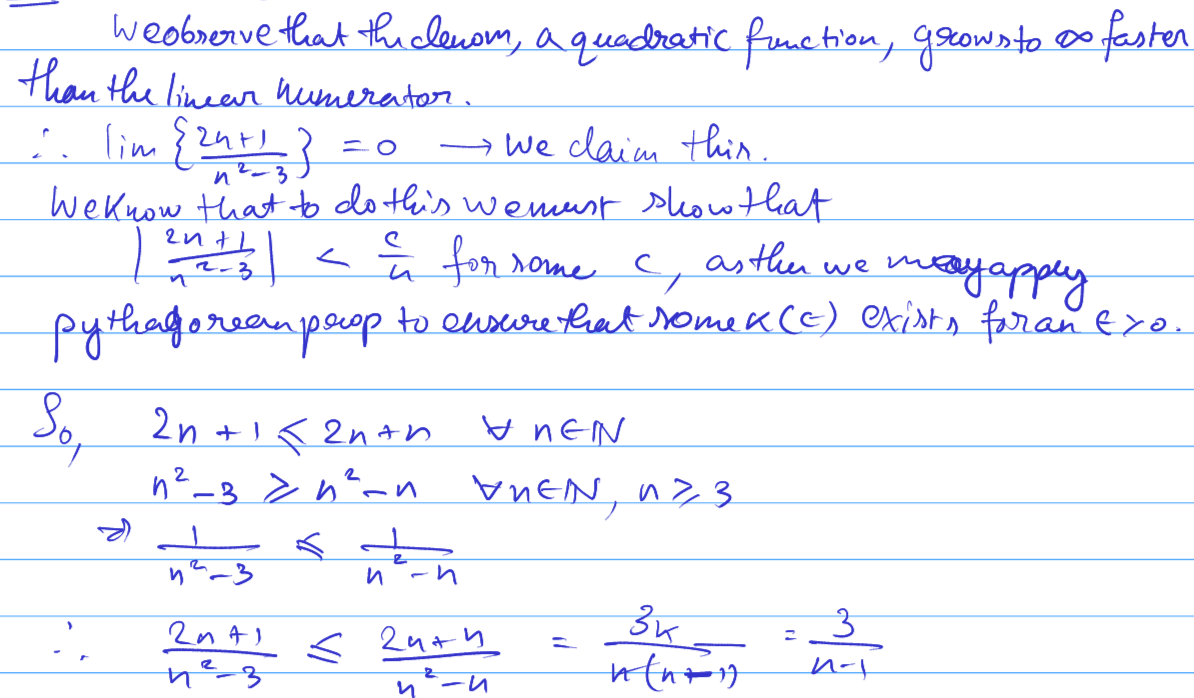 We observe that the denom, a quadratic function, grows to ∞ faster
than the linear numerator.
∴ lim {(2n+1)/(n²-3)} = 0 → We claim this.
We know that to do this we must show that
|(2n+1)/(n²-3)| < c/n for some c, as then we may apply
pythagorean prop to ensure that some K(ϵ) exists for an ϵ>0.
So, 2n+1 ≤ 2n+n ∀ n∈ℕ
n²-3 ≥ n²-n ∀n∈ℕ, n≥3
⇒ 1/(n²-3) ≤ 1/(n²-n)
∴ (2n+1)/(n²-3) ≤ (2n+n)/(n²-n) = 3n/(n(n-1)) = 3/(n-1)